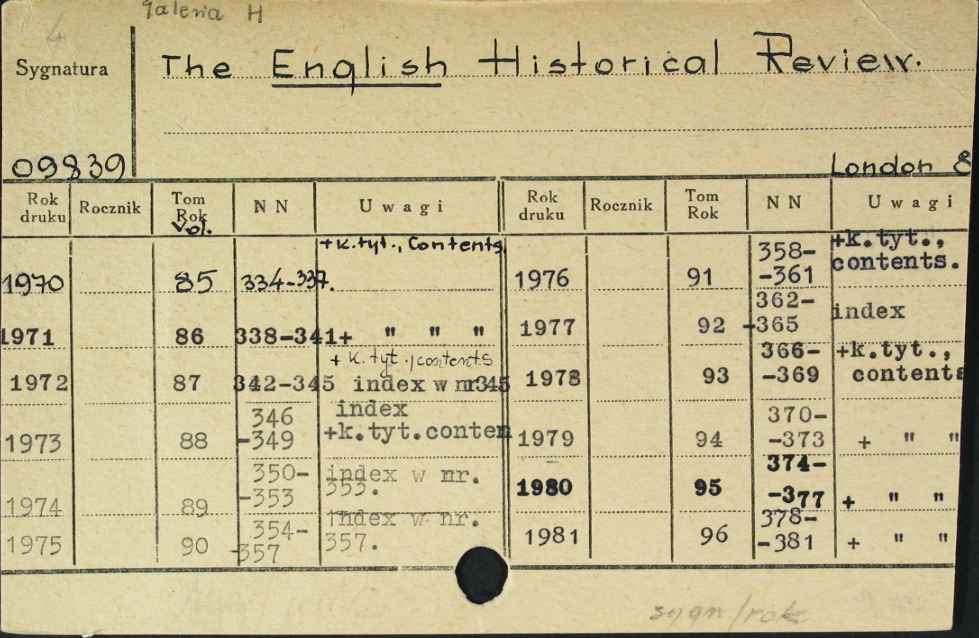 4 Galeria H
Sygnatura The English Historical Review.
09839 London
Rok druku Rocznik Tom Rok Vol. NN Uwagi
1970 85 334-337. +k.tyt., Contents
1971 86 338-341 + " " "
1972 87 342-345 + k.tyt., contents index w nr345
1973 88 346-349 index +k.tyt.conten
1974 89 350-353 index w nr. 353.
1975 90 354-357 index w nr. 357.
Rok druku Rocznik Tom Rok NN Uwagi
1976 91 358-361 +k.tyt., contents.
1977 92 362-365 index
1978 93 366-369 +k.tyt., contents
1979 94 370-373 + " "
1980 95 374-377 + " "
1981 96 378-381 + " "
sygn/rok